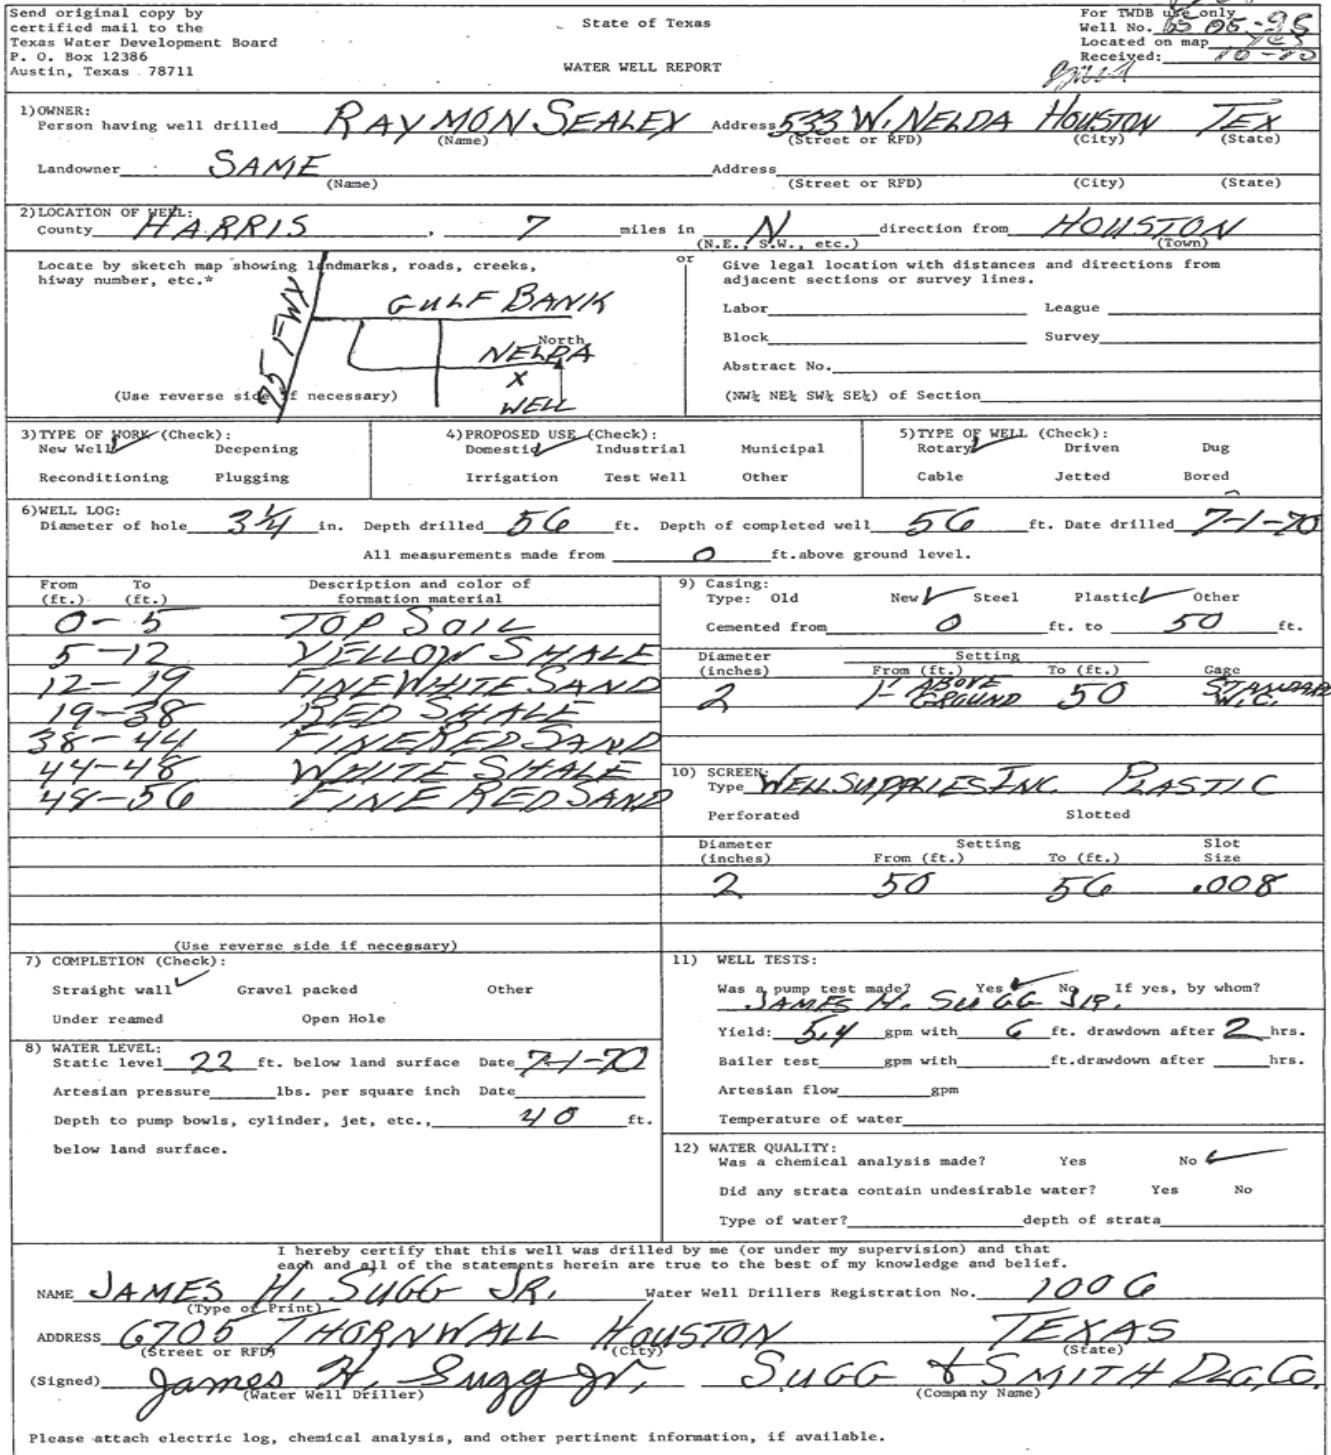 Send original copy by
certified mail to the
Texas Water Development Board
P. O. Box 12386
Austin, Texas 78711
State of Texas
WATER WELL REPORT
For TWDB use only
Well No. 65 05-95
Located on map yes
Received: 10-70
1)OWNER:
Person having well drilled RAYMON SEALEY Address 533 W. NELDA HOUSTON TEX
(Name) (Street or RFD) (City) (State)
Landowner SAME Address
(Name) (Street or RFD) (City) (State)
2)LOCATION OF WELL:
County HARRIS , 7 miles in N direction from HOUSTON
(N.E., S.W., etc.) (Town)
Locate by sketch map showing landmarks, roads, creeks,
hiway number, etc.*
GULF BANK
FWY
North
NELDA
X
WELL
(Use reverse side if necessary)
or
Give legal location with distances and directions from
adjacent sections or survey lines.
Labor League
Block Survey
Abstract No.
(NW¼ NE¼ SW¼ SE¼) of Section
3)TYPE OF WORK (Check):
New Well ✓ Deepening
Reconditioning Plugging
4)PROPOSED USE (Check):
Domestic ✓ Industrial Municipal
Irrigation Test Well Other
5)TYPE OF WELL (Check):
Rotary ✓ Driven Dug
Cable Jetted Bored
6)WELL LOG:
Diameter of hole 3¼ in. Depth drilled 56 ft. Depth of completed well 56 ft. Date drilled 7-1-70
All measurements made from 0 ft.above ground level.
From To Description and color of
(ft.) (ft.) formation material
0-5 TOP SOIL
5-12 YELLOW SHALE
12-19 FINE WHITE SAND
19-38 RED SHALE
38-44 FINE RED SAND
44-48 WHITE SHALE
48-56 FINE RED SAND
(Use reverse side if necessary)
9) Casing:
Type: Old New ✓ Steel Plastic ✓ Other
Cemented from 0 ft. to 50 ft.
Diameter Setting
(inches) From (ft.) To (ft.) Gage
2 1' ABOVE GROUND 50 STANDARD W.C.
10) SCREEN:
Type WELL SUPPLIES INC. PLASTIC
Perforated Slotted
Diameter Setting Slot
(inches) From (ft.) To (ft.) Size
2 50 56 .008
7) COMPLETION (Check):
Straight wall ✓ Gravel packed Other
Under reamed Open Hole
8) WATER LEVEL:
Static level 22 ft. below land surface Date 7-1-70
Artesian pressure lbs. per square inch Date
Depth to pump bowls, cylinder, jet, etc., 40 ft.
below land surface.
11) WELL TESTS:
Was a pump test made? Yes ✓ No If yes, by whom?
JAMES H. SUGG JR.
Yield: 5.4 gpm with 6 ft. drawdown after 2 hrs.
Bailer test gpm with ft.drawdown after hrs.
Artesian flow gpm
Temperature of water
12) WATER QUALITY:
Was a chemical analysis made? Yes No ✓
Did any strata contain undesirable water? Yes No
Type of water? depth of strata
I hereby certify that this well was drilled by me (or under my supervision) and that
each and all of the statements herein are true to the best of my knowledge and belief.
NAME JAMES H. SUGG JR. Water Well Drillers Registration No. 1006
(Type or Print)
ADDRESS 6705 THORNWALL HOUSTON TEXAS
(Street or RFD) (City) (State)
(Signed) James H. Sugg Jr. SUGG & SMITH DLG. CO.
(Water Well Driller) (Company Name)
Please attach electric log, chemical analysis, and other pertinent information, if available.